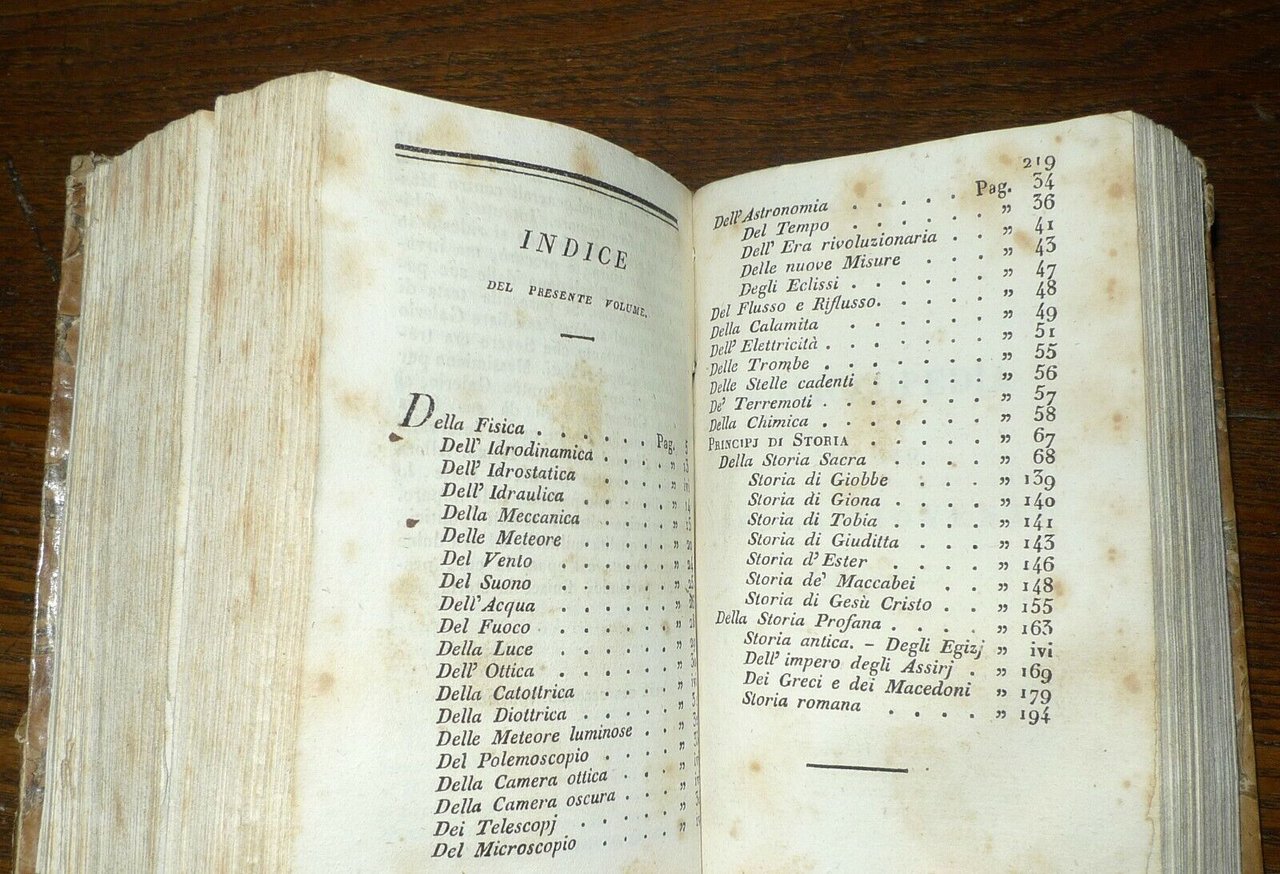 INDICE
DEL PRESENTE VOLUME.
Della Fisica . . . . . . Pag. 5
Dell' Idrodinamica . . . . „
Dell' Idrostatica . . . . „
Dell' Idraulica . . . . . „ 14
Della Meccanica . . . . „ 15
Delle Meteore . . . . . „ 20
Del Vento . . . . . . „
Del Suono . . . . . . „
Dell'Acqua . . . . . . „
Del Fuoco . . . . . . „
Della Luce . . . . . . „
Dell' Ottica . . . . . . „
Della Catottrica . . . . . „
Della Diottrica . . . . . „
Delle Meteore luminose . . „
Del Polemoscopio . . . . „
Della Camera ottica . . . „
Della Camera oscura . . . „
Dei Telescopj . . . . . „
Del Microscopio . . . .
219
Dell'Astronomia . . . . . Pag. 34
Del Tempo . . . . . . „ 36
Dell' Era rivoluzionaria . . „ 41
Delle nuove Misure . . . „ 43
Degli Eclissi . . . . . . „ 47
Del Flusso e Riflusso. . . . . „ 48
Della Calamita . . . . . . „ 49
Dell' Elettricità . . . . . . „ 51
Delle Trombe . . . . . . „ 55
Delle Stelle cadenti . . . . . „ 56
De' Terremoti . . . . . . . „ 57
Della Chimica . . . . . . . „ 58
PRINCIPJ DI STORIA . . . . . „ 67
Della Storia Sacra . . . . „ 68
Storia di Giobbe . . . . „ 139
Storia di Giona . . . . „ 140
Storia di Tobia . . . . „ 141
Storia di Giuditta . . . „ 143
Storia d'Ester . . . . „ 146
Storia de' Maccabei . . . „ 148
Storia di Gesù Cristo . . „ 155
Della Storia Profana . . . . „ 163
Storia antica. - Degli Egizj „ ivi
Dell' impero degli Assirj . „ 169
Dei Greci e dei Macedoni „ 179
Storia romana . . . . „ 194